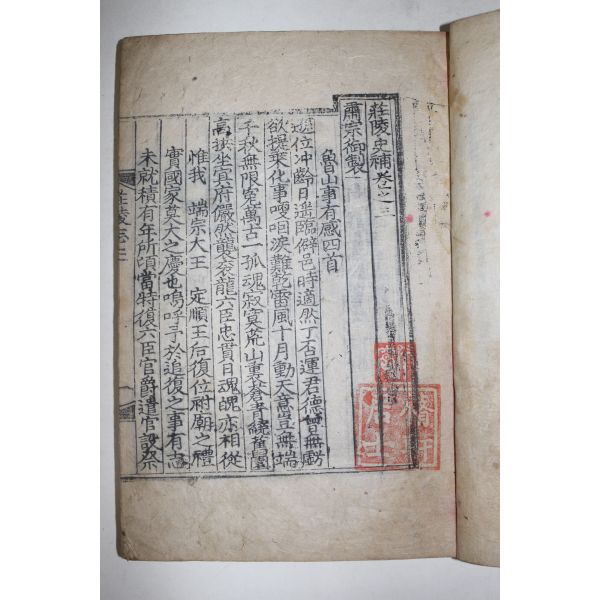 莊陵史補卷之三
肅宗御製
魯山事有感四首
遜位冲齡日遥臨僻邑時適然丁否運君德曾無虧
欲提乘化事嗄咽淚難乾雷風十月動天意豈無端
千秋無限寃萬古一孤魂寂寞荒山裏蒼松繞舊園
高拱坐冥府儼然龍袞龍六臣忠貫日魂魄亦相從
惟我 端宗大王 定順王后復位祔廟之禮
實國家莫大之慶也嗚呼予於追復之事有志
未就積有年所頃當特復六臣官爵遣官設祭
莊陵志三